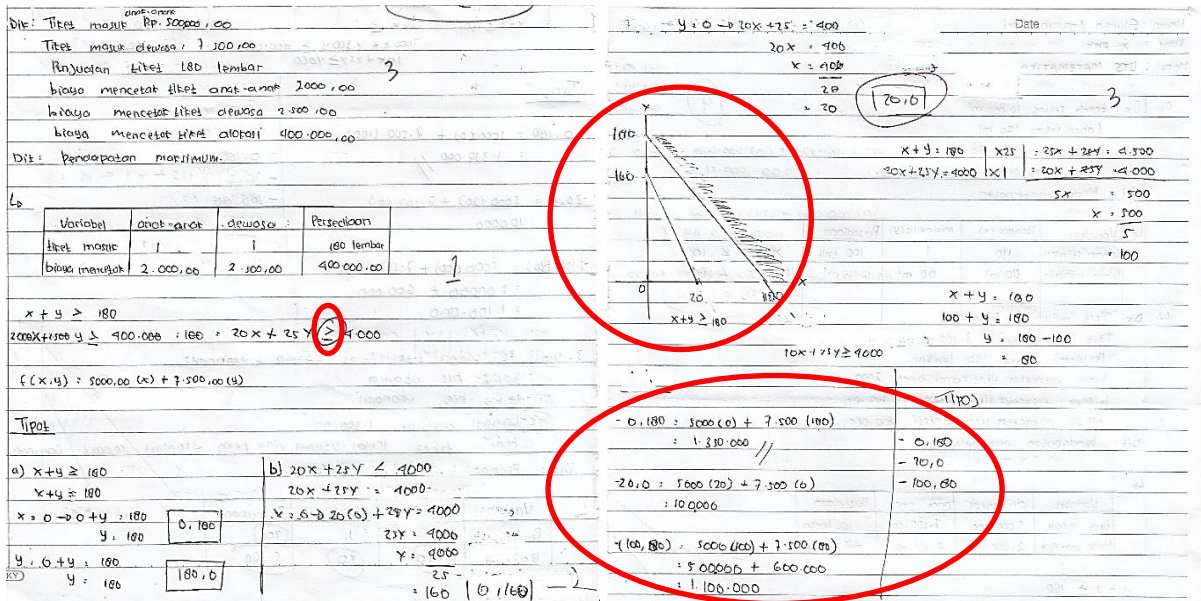 anak-anak
Dik: Tiket masuk Rp. 500000,00
Tiket masuk dewasa: 7.500,00
Penjualan tiket 180 lembar
3
biaya mencetak tiket anak-anak 2000,00
biaya mencetak tiket dewasa 2.500,00
biaya mencetak tiket alokasi 400.000,00
Dit: Pendapatan maksimum.
Variabel anak-anak dewasa: Persediaan
tiket masuk 1 1 180 lembar
biaya mencetak 2.000,00 2.500,00 400.000,00
1
x + y > 180
2000x+2500 y ≥ 400.000 : 100 = 20x + 25y ≥ 4000
f(x,y) : 5000,00 (x) + 7.500,00 (y)
Tipot
a) x+y ≥ 180
x+y = 180
x = 0 → 0+y = 180
y = 180
0,180
y : 0+y = 180
y = 180
180,0
KY
b) 20x + 25y < 4000
20x + 25y = 4000
x = 0 → 20(0) + 25y = 4000
25y = 4000
y = 4000
25
= 160 (0,160)
Date
y = 0 → 20x +25 = 400
20x = 400
x = 400
20
= 20
20,0
3
x + y = 180 | x25 | = 25x + 25y = 4.500
20x+25y = 4000 | x1 | = 20x + 25y = 4.000
5x = 500
x = 500
5
= 100
x + y = 180
100 + y = 180
y = 180 - 100
= 80
y
180
160
0
20
180
x
x+y ≥ 180
20x+25y ≥ 4000
- 0,180 = 5000(0) + 7.500 (180)
= 1.350.000
-20,0 = 5000 (20) + 7.500 (0)
= 100000
-(100,80) = 5000 (100) + 7.500 (80)
= 500000 + 600.000
= 1.100.000
- 0,180
- 20,0
- 100,80